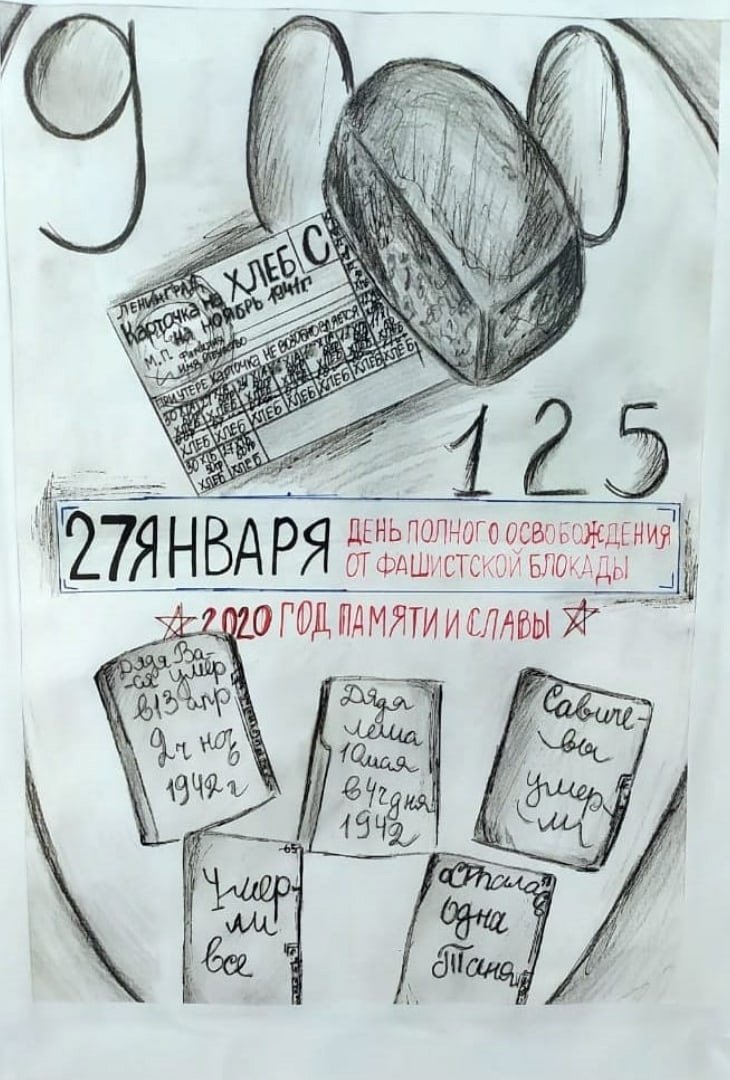 900
ЛЕНИНГРАД
Карточка на ХЛЕБ С
на НОЯБРЬ 1941г
М.П. Фамилия
Имя отчество
ПРИ УТЕРЕ КАРТОЧКА НЕ ВОЗОБНОВЛЯЕТСЯ
ХЛЕБ ХЛЕБ ХЛЕБ ХЛЕБ ХЛЕБ ХЛЕБ
ХЛЕБ
ХЛЕБ ХЛЕБ
125
27 ЯНВАРЯ
ДЕНЬ ПОЛНОГО ОСВОБОЖДЕНИЯ
ОТ ФАШИСТСКОЙ БЛОКАДЫ
2020 ГОД ПАМЯТИ И СЛАВЫ
Дядя Ва-
-ся умер
в 13 апр
2 ч ноч
1942 г
Дядя
Леша
10 мая
в 4 ч дня
1942
Савиче-
вы
умер-
ли
Умер-
ли
все
Осталась
одна
Таня